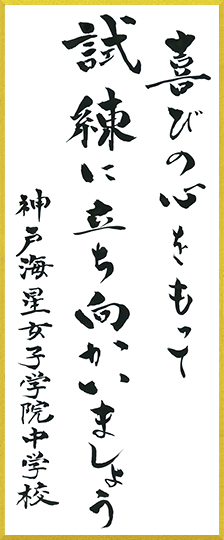 喜びの心をもって
試練に立ち向かいましょう
神戸海星女子学院中学校